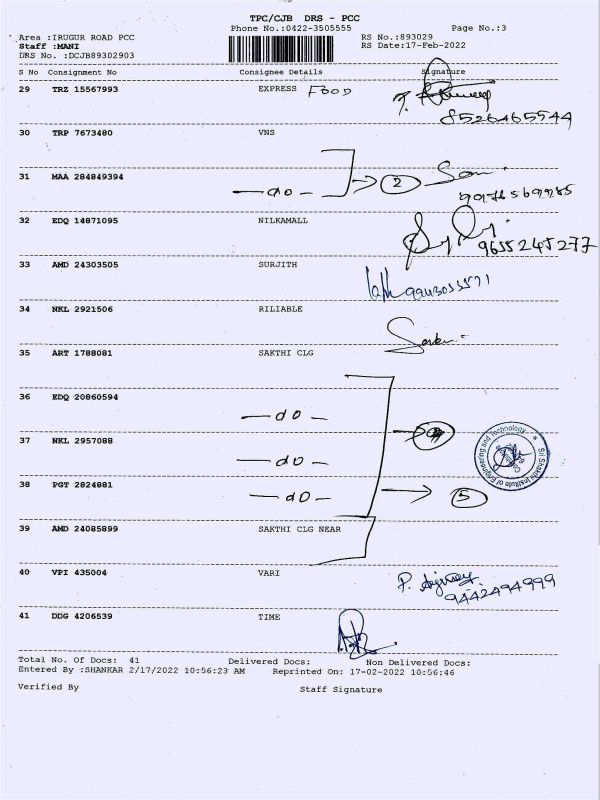 TPC/CJB DRS - PCC
Phone No.:0422-3505555 Page No.:3
Area :IRUGUR ROAD PCC RS No.:893029
Staff :MANI RS Date:17-Feb-2022
DRS No. :DCJB89302903
S No Consignment No Consignee Details Signature
29 TRZ 15567993 EXPRESS FOOD
8526465544
30 TRP 7673480 VNS
31 MAA 284849394 -do- 2
32 EDQ 14871095 NILKAMALL
9655245277
33 AMD 24303505 SURJITH
34 NKL 2921506 RILIABLE
35 ART 1788081 SAKTHI CLG
36 EDQ 20860594 -do-
37 NKL 2957088 -do-
Sri Shakthi Institute of Engineering and Technology
38 PGT 2824881 -do- 5
39 AMD 24085899 SAKTHI CLG NEAR
40 VPI 435004 VARI
9442494999
41 DDG 4206539 TIME
Total No. Of Docs: 41 Delivered Docs: Non Delivered Docs:
Entered By :SHANKAR 2/17/2022 10:56:23 AM Reprinted On: 17-02-2022 10:56:46
Verified By Staff Signature